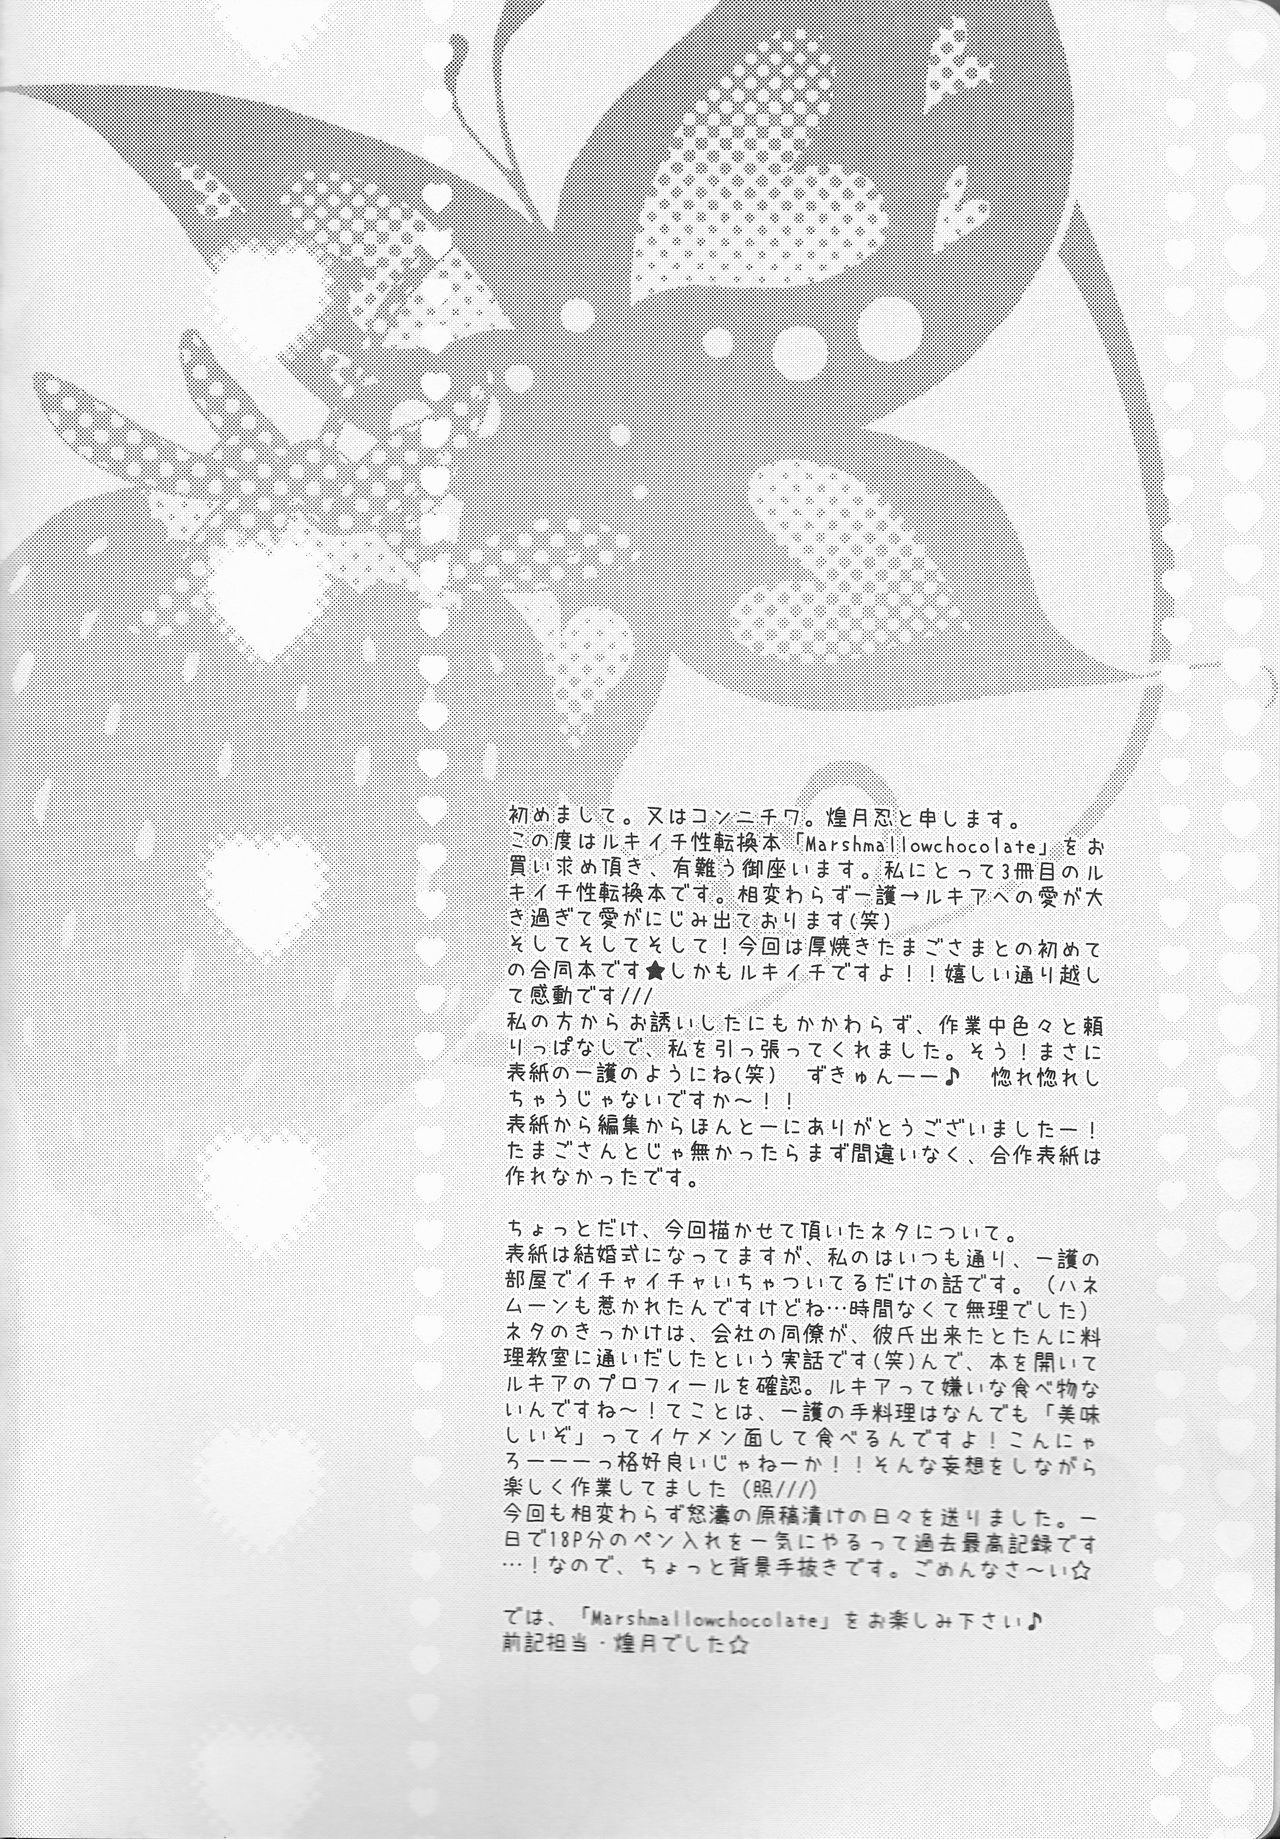 初めまして。又はコンニチワ。煌月忍と申します。
この度はルキイチ性転換本「Marshmallowchocolate」をお
買い求め頂き、有難う御座います。私にとって3冊目のル
キイチ性転換本です。相変わらず一護→ルキアへの愛が大
き過ぎて愛がにじみ出ております(笑)
そしてそしてそして！今回は厚焼きたまごさまとの初めて
の合同本です★しかもルキイチですよ！！嬉しい通り越し
て感動です///
私の方からお誘いしたにもかかわらず、作業中色々と頼
りっぱなしで、私を引っ張ってくれました。そう！まさに
表紙の一護のようにね(笑)　ずきゅんーー♪　惚れ惚れし
ちゃうじゃないですか～！！
表紙から編集からほんとーにありがとうございましたー！
たまごさんとじゃ無かったらまず間違いなく、合作表紙は
作れなかったです。
ちょっとだけ、今回描かせて頂いたネタについて。
表紙は結婚式になってますが、私のはいつも通り、一護の
部屋でイチャイチャいちゃついてるだけの話です。（ハネ
ムーンも惹かれたんですけどね…時間なくて無理でした）
ネタのきっかけは、会社の同僚が、彼氏出来たとたんに料
理教室に通いだしたという実話です(笑)んで、本を開いて
ルキアのプロフィールを確認。ルキアって嫌いな食べ物な
いんですね～！てことは、一護の手料理はなんでも「美味
しいぞ」ってイケメン面して食べるんですよ！こんにゃ
ろーーーっ格好良いじゃねーか！！そんな妄想をしながら
楽しく作業してました（照///）
今回も相変わらず怒濤の原稿漬けの日々を送りました。一
日で18P分のペン入れを一気にやるって過去最高記録です
…！なので、ちょっと背景手抜きです。ごめんなさ～い☆
では、「Marshmallowchocolate」をお楽しみ下さい♪
前記担当・煌月でした☆